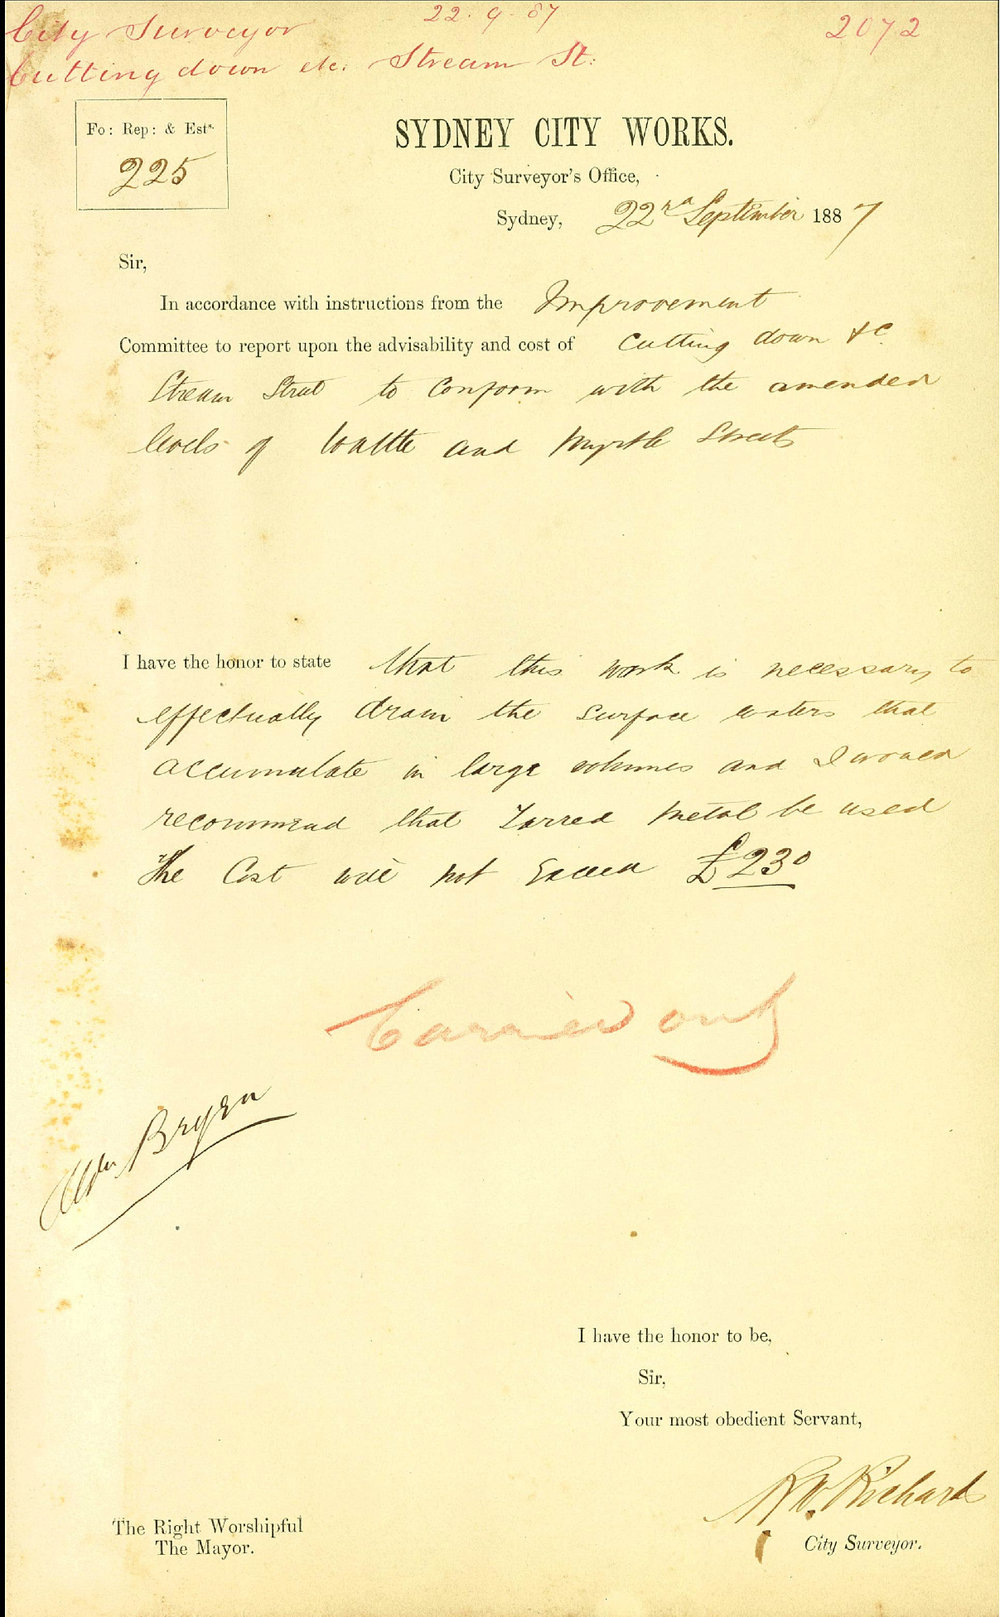 City Surveyor 22.9.87 2072
Cutting down etc. Stream St:
Fo: Rep: & Est⁠s.
225
SYDNEY CITY WORKS.
City Surveyor's Office,
Sydney, 22nd September 1887
Sir,
In accordance with instructions from the Improvement
Committee to report upon the advisability and cost of Cutting down &c
Stream Street to Conform with the amended
levels of Wattle and Myrtle Streets
I have the honor to state that this work is necessary to
effectually drain the surface waters that
accumulate in large volumes and I would
recommend that Tarred Metal be used
The Cost will not Exceed £230
Carried out
Bryen
I have the honor to be,
Sir,
Your most obedient Servant,
R W. Richard
City Surveyor.
The Right Worshipful
The Mayor.